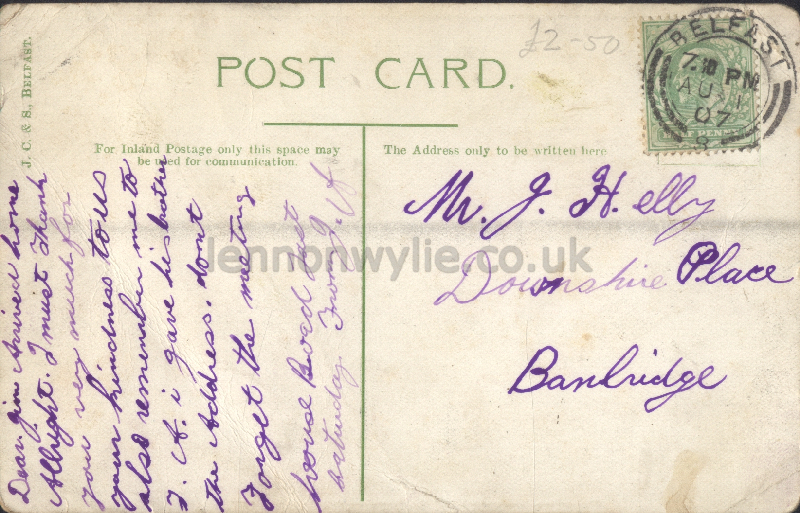 J. C. & S., BELFAST.
POST CARD.
£2-50
BELFAST
7.30 PM
AU
07
8
PENNY
For Inland Postage only this space may
be used for communication.
The Address only to be written here
Dear Jim Arrived home
Allright. I must thank
you very much for
your kindness to us
also remember me to
J. A. i gave his brother
the Address. dont
Forget the meeting
house Road next
saturday From J. H
Mr. J. H. elly
Downshire Place
Banbridge
lennonwylie.co.uk